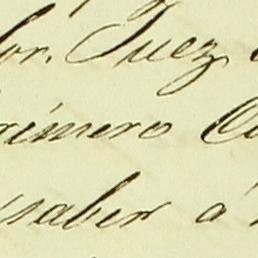 or. Juez
rimero C
saber á